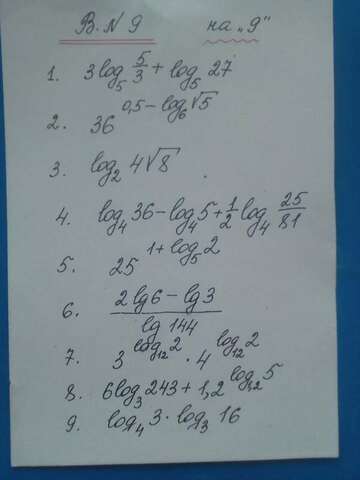 В. N 9 на „9"
1. 3log₅ 5/3 + log₅ 27
2. 36^(0,5 – log₆√5)
3. log₂ 4√8
4. log₄ 36 – log₄ 5 + 1/2 log₄ 25/81
5. 25^(1 + log₅ 2)
6. (2lg6 – lg3)/(lg 144)
7. 3^(log₁₂ 2) · 4^(log₁₂ 2)
8. 6log₃ 243 + 1,2^(log₁,₂ 5)
9. log₄ 3 · log₃ 16